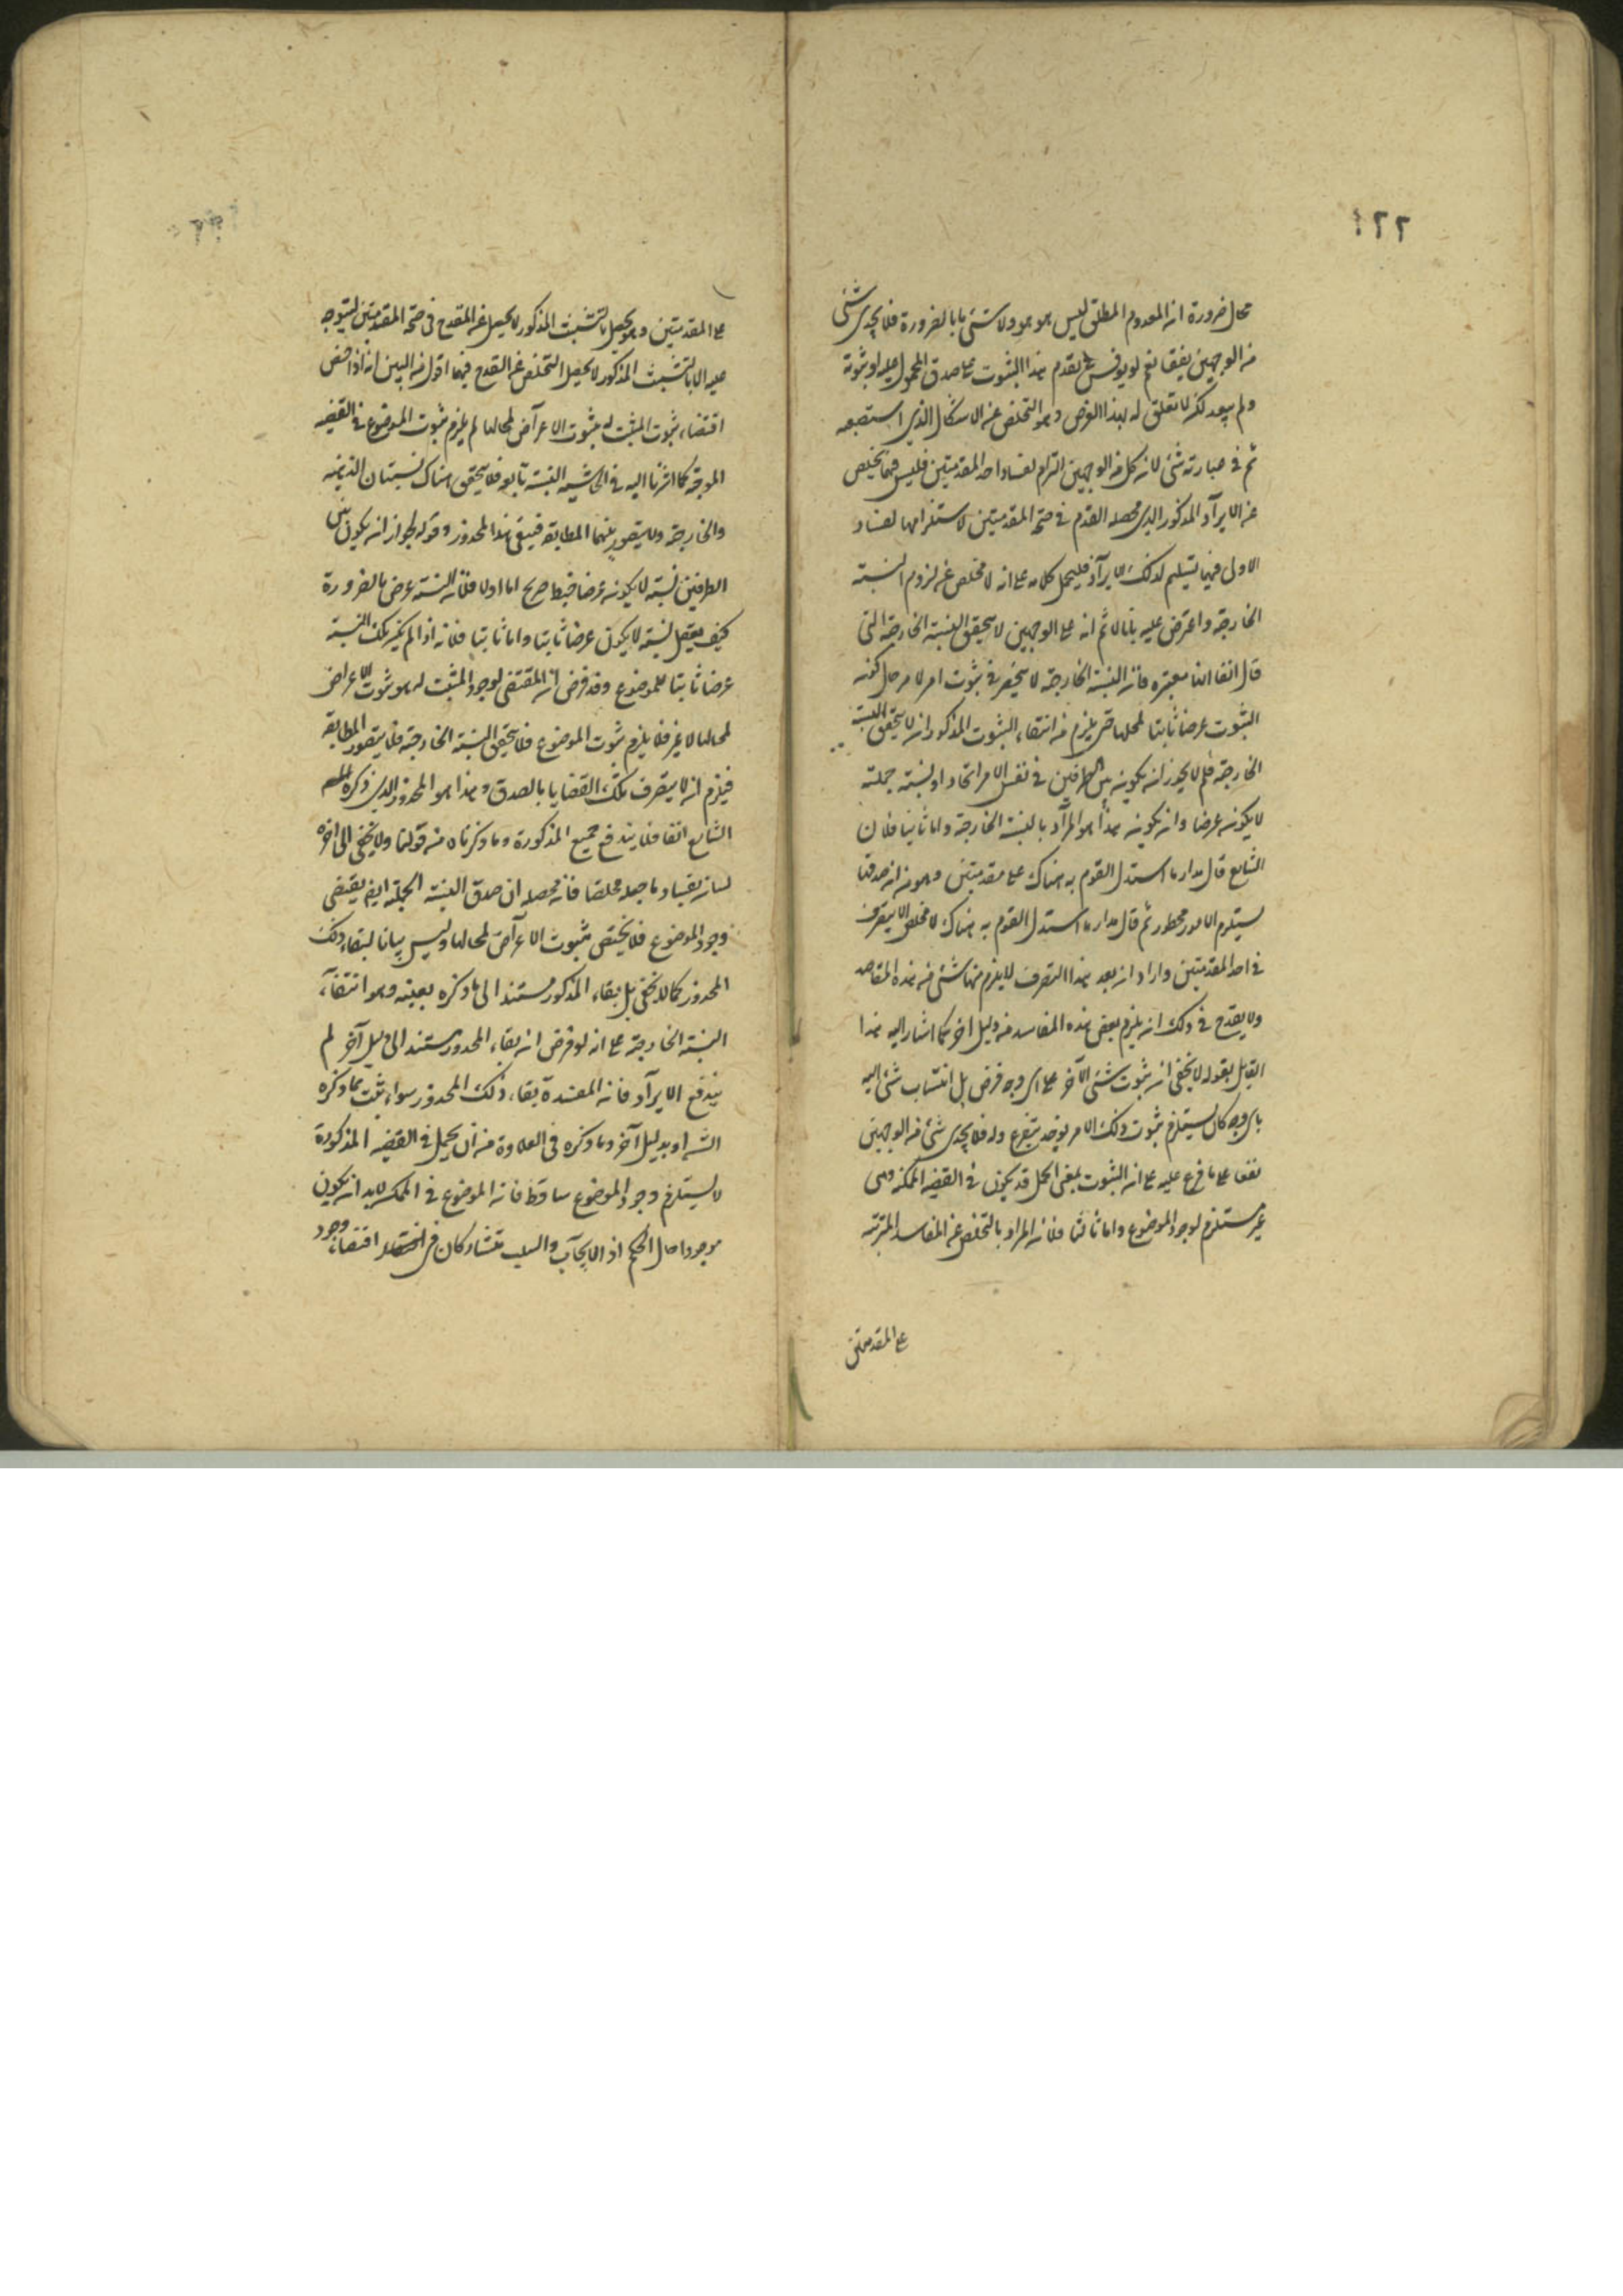 ١٢٢
محال ضرورة ان المعدوم المطلق ليس هو هو ولا شئ ما بالضرورة فلا يجدى شئ
من الوجهين نفعا نعم لو نوقش تقدم هذا الثبوت على صدق المحمول عليه او ثبوته
ولم يبعد لكن لا تعلق له بهذا الغرض وهو التخلص عن الاشكال الذى استصعبه
ثم فى عبارته شئ لان كل من الوجهين التزام لفساد احد المقدمتين فليس فيهما تخلص
عن الايراد المذكور الذى محصله القدح فى صحة المقدمتين لاستلزامهما لفساد
الاولى فهما تسليم لذلك الايراد فليحمل كلامه على انه لا مخلص عن لزوم النسبة
الخارجة واعترض عليه بانا لا ثم انه على الوجهين لا يتحقق النسبة الخارجة التى
قال انفا انها معتبره فان النسبة الخارجة لا ينحصر فى ثبوت امر لامر حال كونه
الثبوت عرضا ثابتا لمحلها حتى يلزم من انتفاء الثبوت المذكور ان لا يتحقق النسبة
الخارجة فلم لا يجوز ان يكون بين الطرفين فى نفس الامر اتحاد او نسبة حملية
لا يكون عرضا وان يكون هذا هو المراد بالنسبة الخارجة واما ثانيا فلان
الشايع قال مدار ما استدل القوم به هناك على مقدمتين وهو ان صدقها
يستلزم الامور محظور ثم قال مدار ما استدل القوم به هناك لا مخلص الا بتصرف
فى احد المقدمتين واراد ان بعد هذا التصرف لا يلزم منها شئ من هذه المقاصد
ولا يقدح فى ذلك ان يلزم بعض هذه المفاسد من دليل اخر كما اشار اليه هذا
القايل بقوله لا يخفى ان ثبوت شئ لآخر على اى وجه فرض بل انتساب شئ اليه
باى وجه كان يستلزم ثبوت ذلك الامر ويتفرع وله فلا يجدى شئ من الوجهين
نفعا على ما فرع عليه على ان الثبوت بمعنى الحمل قد يكون فى القضيه الممكنه وهى
غير مستلزم لوجود الموضوع واما ثالثا فلان المراد بالتخلص عن المفاسد المترتبه
على المقدمتين
على المقدمتين وهو يحصل بالتشبث المذكور لا يحصل عن القدح فى صحة المقدمتين ليتوجه
عليه الا بالتشبث المذكور لا يحصل التخلص عن القدح فيهما اقول من البين انه اذا خص
اقتضاء ثبوت المثبت له بثبوت الاعراض لمحالها لم يلزم ثبوت الموضوع فى القضيه
الموجبة كما اشرنا اليه فى الحاشيه النسبة تابعه فلا يتحقق هناك نسبتان الذهنيه
والخارجة ولا يتصور بينهما المطابقه فيبقى هذا المحذور وقوله لجواز ان يكون بين
الطرفين نسبة لا يكون عرضا خبط صريح اما اولا فلان النسبة عرض بالضرورة
كيف يعقل نسبة لا يكون عرضا ثابتا واما ثانيا فلانه اذا لم يكن تلك النسبة
عرضا ثابتا للموضوع وقد فرض ان المقتضى لوجود المثبت له هو ثبوت الاعراض
لمحالها لا غير فلا يلزم ثبوت الموضوع فلا يتحقق النسبة الخارجة فلا يتصور المطابقه
فيلزم ان لا يتصرف تلك القضايا بالصدق وهذا هو المحذور الذى ذكره
الشايع انفا فلا يندفع جميع المذكورة وما ذكرناه من قولنا ولا يخفى الى اخره
لسان بفساد ما جعله مخلصا فان محصله ان صدق النسبة الحملية ايضا يقتضى
وجود الموضوع فلا يختص بثبوت الاعراض لمحالها وليس بيانا لبقاء ذلك
المحذور كما لا يخفى بل بقاء المذكور مستند الى ما ذكره بعينه وهو انتفاء
النسبة الخارجة على انه لو فرض ان بقاء المحذور مستند الى دليل آخر لم
يندفع الايراد فان المفسدة بقاء ذلك المحذور سواء ثبت بما ذكره
الشه او بدليل آخر وما ذكره فى العلاوة من ان يحمل فى القضيه المذكورة
لا يستلزم وجود الموضوع ساقط فان الموضوع فى الممكنه لابد ان يكون
موجودا حال الحكم اذ الايجاب والسلب تتشاركان فى اقتضاء وجود